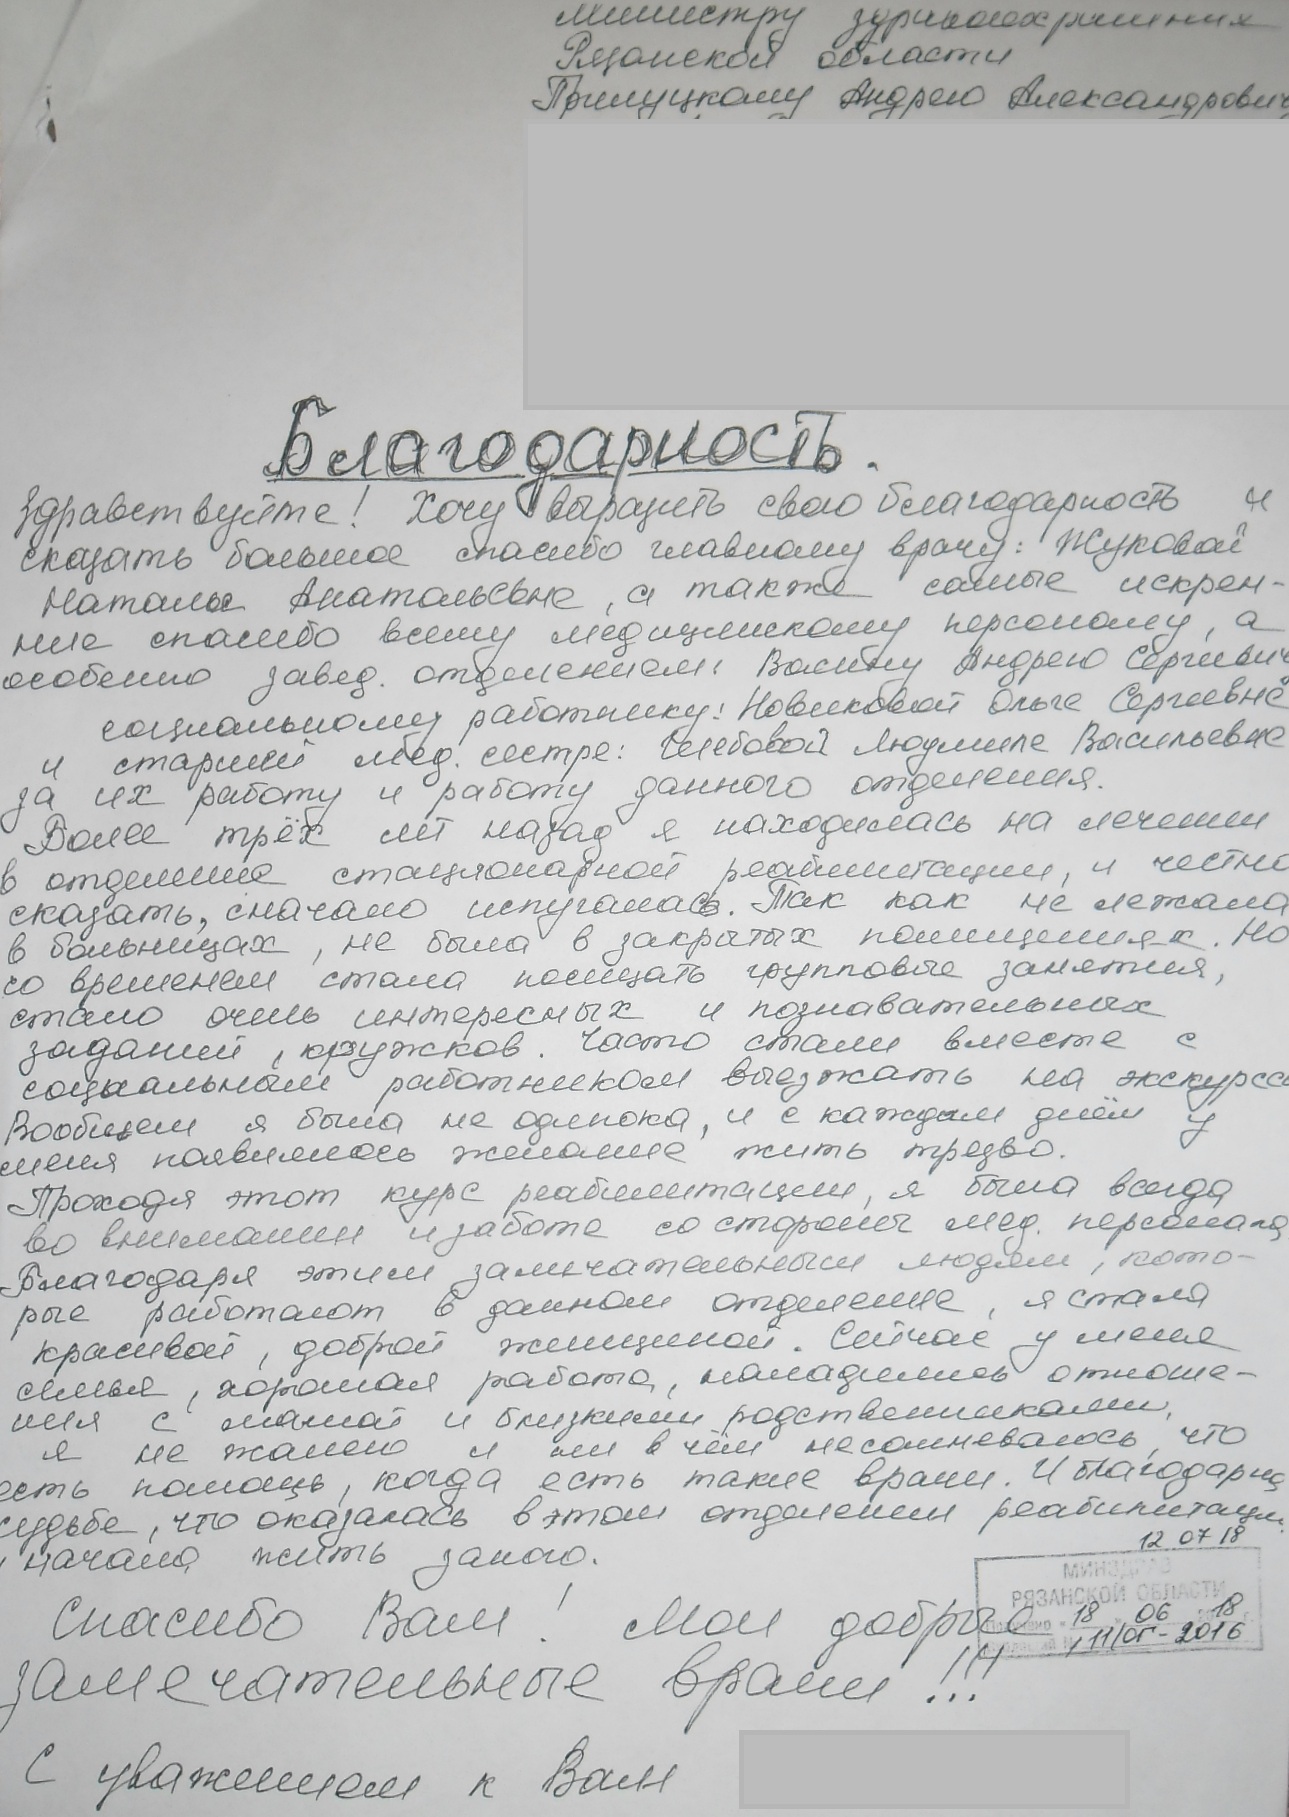 министру здравоохранения
Рязанской области
Прилуцкому Андрею Александрович
Благодарность.
Здравствуйте! Хочу выразить свою благодарность и
сказать большое спасибо главному врачу: Жуковой
Наталье Анатольевне, а также самые искрен-
ние спасибо всему медицинскому персоналу, а
особенно завед. отделением: Андрею Сергеевич
социальному работнику: Новиковой Ольге Сергеевне
и старшей мед. сестре: Людмиле Васильевне
за их работу и работу данного отделения.
Более трёх лет назад я находилась на лечении
в отделение стационарной реабилитации, и честно
сказать, сначало испугалась. Так как не лежала
в больницах, не была в закрытых помещениях. Но
со временем стала посещать групповые занятия,
стало очень интересных и познавательных
заданий, кружков. Часто стали вместе с
социальным работником выезжать на экскурси
Вообщем я была не одинока, и с каждым днём у
меня появилось желание жить трезво.
Проходя этот курс реабилитации, я была всегда
во внимании и заботе со стороны мед. персонала
Благодаря этим замечательным людям, кото-
рые работают в данном отделение, я стала
красивой, доброй женщиной. Сейчас у меня
семья, хорошая работа, наладились отноше-
ния с мамой и близкими родственниками,
я не жалею и ни в чём несомневаюсь, что
есть помощь, когда есть такие врачи. И благодарна
судьбе, что оказалась в этом отделении реабилитации
и начала жить заного.
12.07.18
МИНЗДРАВ
РЯЗАНСКОЙ ОБЛАСТИ
18 06 18
11/ОГ-2016
Спасибо Вам! Мои добрые
замечательные врачи!!!
С уважением к Вам